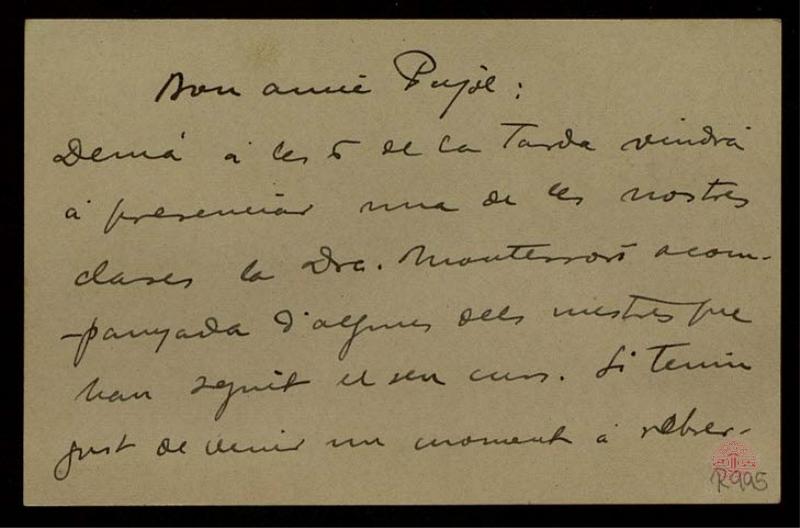 Bon amic Pujol:
Demá á les 5 de la tarda vindrá
á presenciar una de les nostres
clases la Dra. Montessori acom-
-panyada d'algunes dels mestres que
han seguit el seu curs. Si teniu
gust de venir un moment á rebrer-
R 995